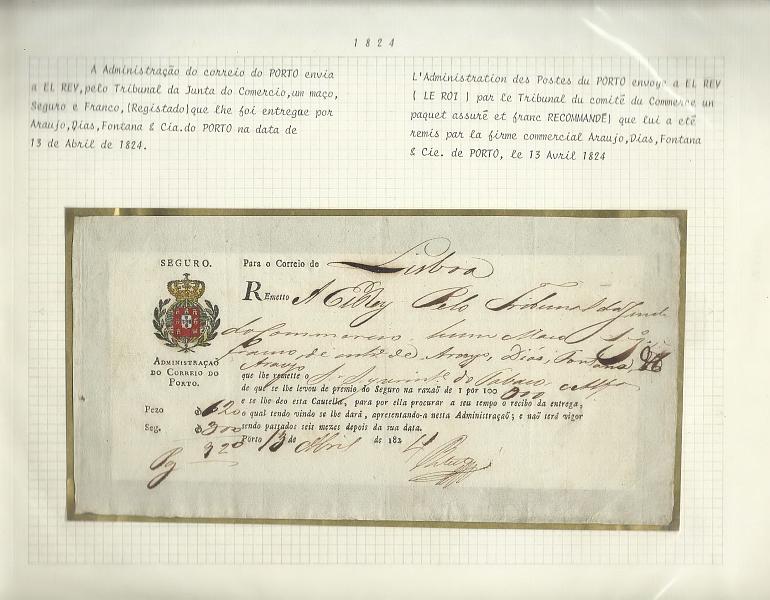 1824
A Administração do correio do PORTO envia
a EL REY,pelo Tribunal da Junta do Comercio,um maço,
Seguro e Franco,(Registado)que lhe foi entregue por
Araujo,Dias,Fontana & Cia.do PORTO na data de
13 de Abril de 1824.
L'Administration des Postes du PORTO envoye a EL REY
( LE ROI ) par le Tribunal du comité du Commerce un
paquet assuré et franc RECOMMANDÉ) que lui a eté
remis par la firme commercial Araujo,Dias,Fontana
& Cie. de PORTO, le 13 Avril 1824
SEGURO.
Para o Correio de Lisboa
REmetto A ElRey Pelo Tribunal da Junta
do Commercio hum Maço
franco, de Araujo, Dias, Fontana
Araujo
ADMINISTRAÇAÕ
DO CORREIO DO
PORTO.
que lhe remette o do Tabaco
de que se lhe levou de premio do Seguro na razaõ de 1 por 100 300
e se lhe deo esta Cautella, para por ella procurar a seu tempo o recibo da entrega,
Pezo $620 o qual tendo vindo se lhe dará, apresentando-a nesta Administraçaõ; e naõ terá vigor
Seg. $300 sendo passados seis mezes depois da sua data.
Pg 920 Porto 13 de Abril de 1824